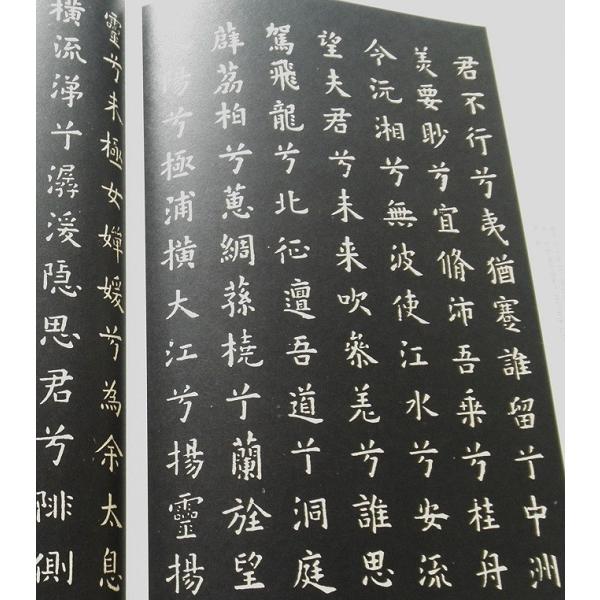 君不行兮夷猶蹇誰留于中洲
美要眇兮宜脩沛吾乗兮桂舟
令沅湘兮無波使江水兮安流
望夫君兮未来吹叅差兮誰思
駕飛龍兮北征邅吾道于洞庭
薜荔柏兮蕙綢蓀橈于蘭旌望
陽兮極浦橫大江兮揚靈揚
靈兮未極女嬋媛兮為余太息
橫流涕于潺湲隠思君兮陫側